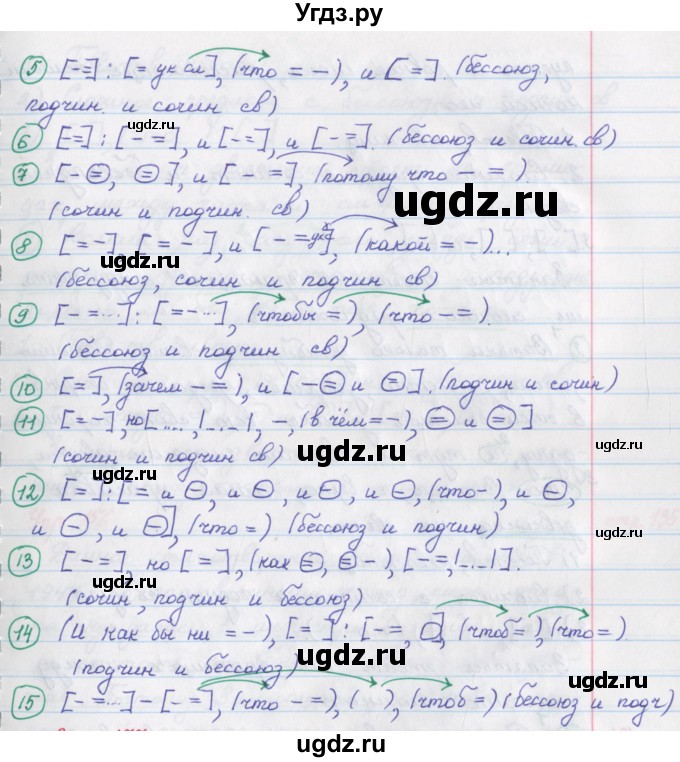 Угдз.ру
5 [-=] : [= ук сл], (что = -), и [=]. (бессоюз,
подчин. и сочин св)
ugdz.ru
6 [=] : [- =], и [-=], и [- =]. (бессоюз и сочин. св)
7 [- ⊖, ⊖], и [ - =], (потому что - =)
ugdz.ru
(сочин и подчин. св)
8 [= -], [= - ], и [- = ук.с], (какой = -)...
ugdz.ru
(бессоюз, сочин и подчин св)
9 [- =...] : [= -...], (чтобы =), (что -=).
(бессоюз и подчин св)
ugdz.ru
10 [=], (зачем - =), и [-⊖ и ⊖]. (подчин и сочин)
11 [= -], но [...., |...|, -, (в чём = -), ⊖ и ⊖]
(сочин и подчин св)
ugdz.ru
12 [=] : [= и ⊖, и ⊖, и ⊖, и ⊖, (что-), и ⊖,
и ⊖, и ⊖], (что =) (бессоюз и подчин)
ugdz.ru
13 [- =], но [=], (как ⊖, ⊖ -), [- =, |...|].
ugdz.ru
(сочин, подчин и бессоюз)
14 (И как бы ни = -), [=] : [- =, ], (чтоб = ), (что =)
ugdz.ru
(подчин и бессоюз)
ugdz.ru
15 [- =...] - [- =], (что - =), ( ), (чтоб =) (бессоюз и подч)
ugdz.ru